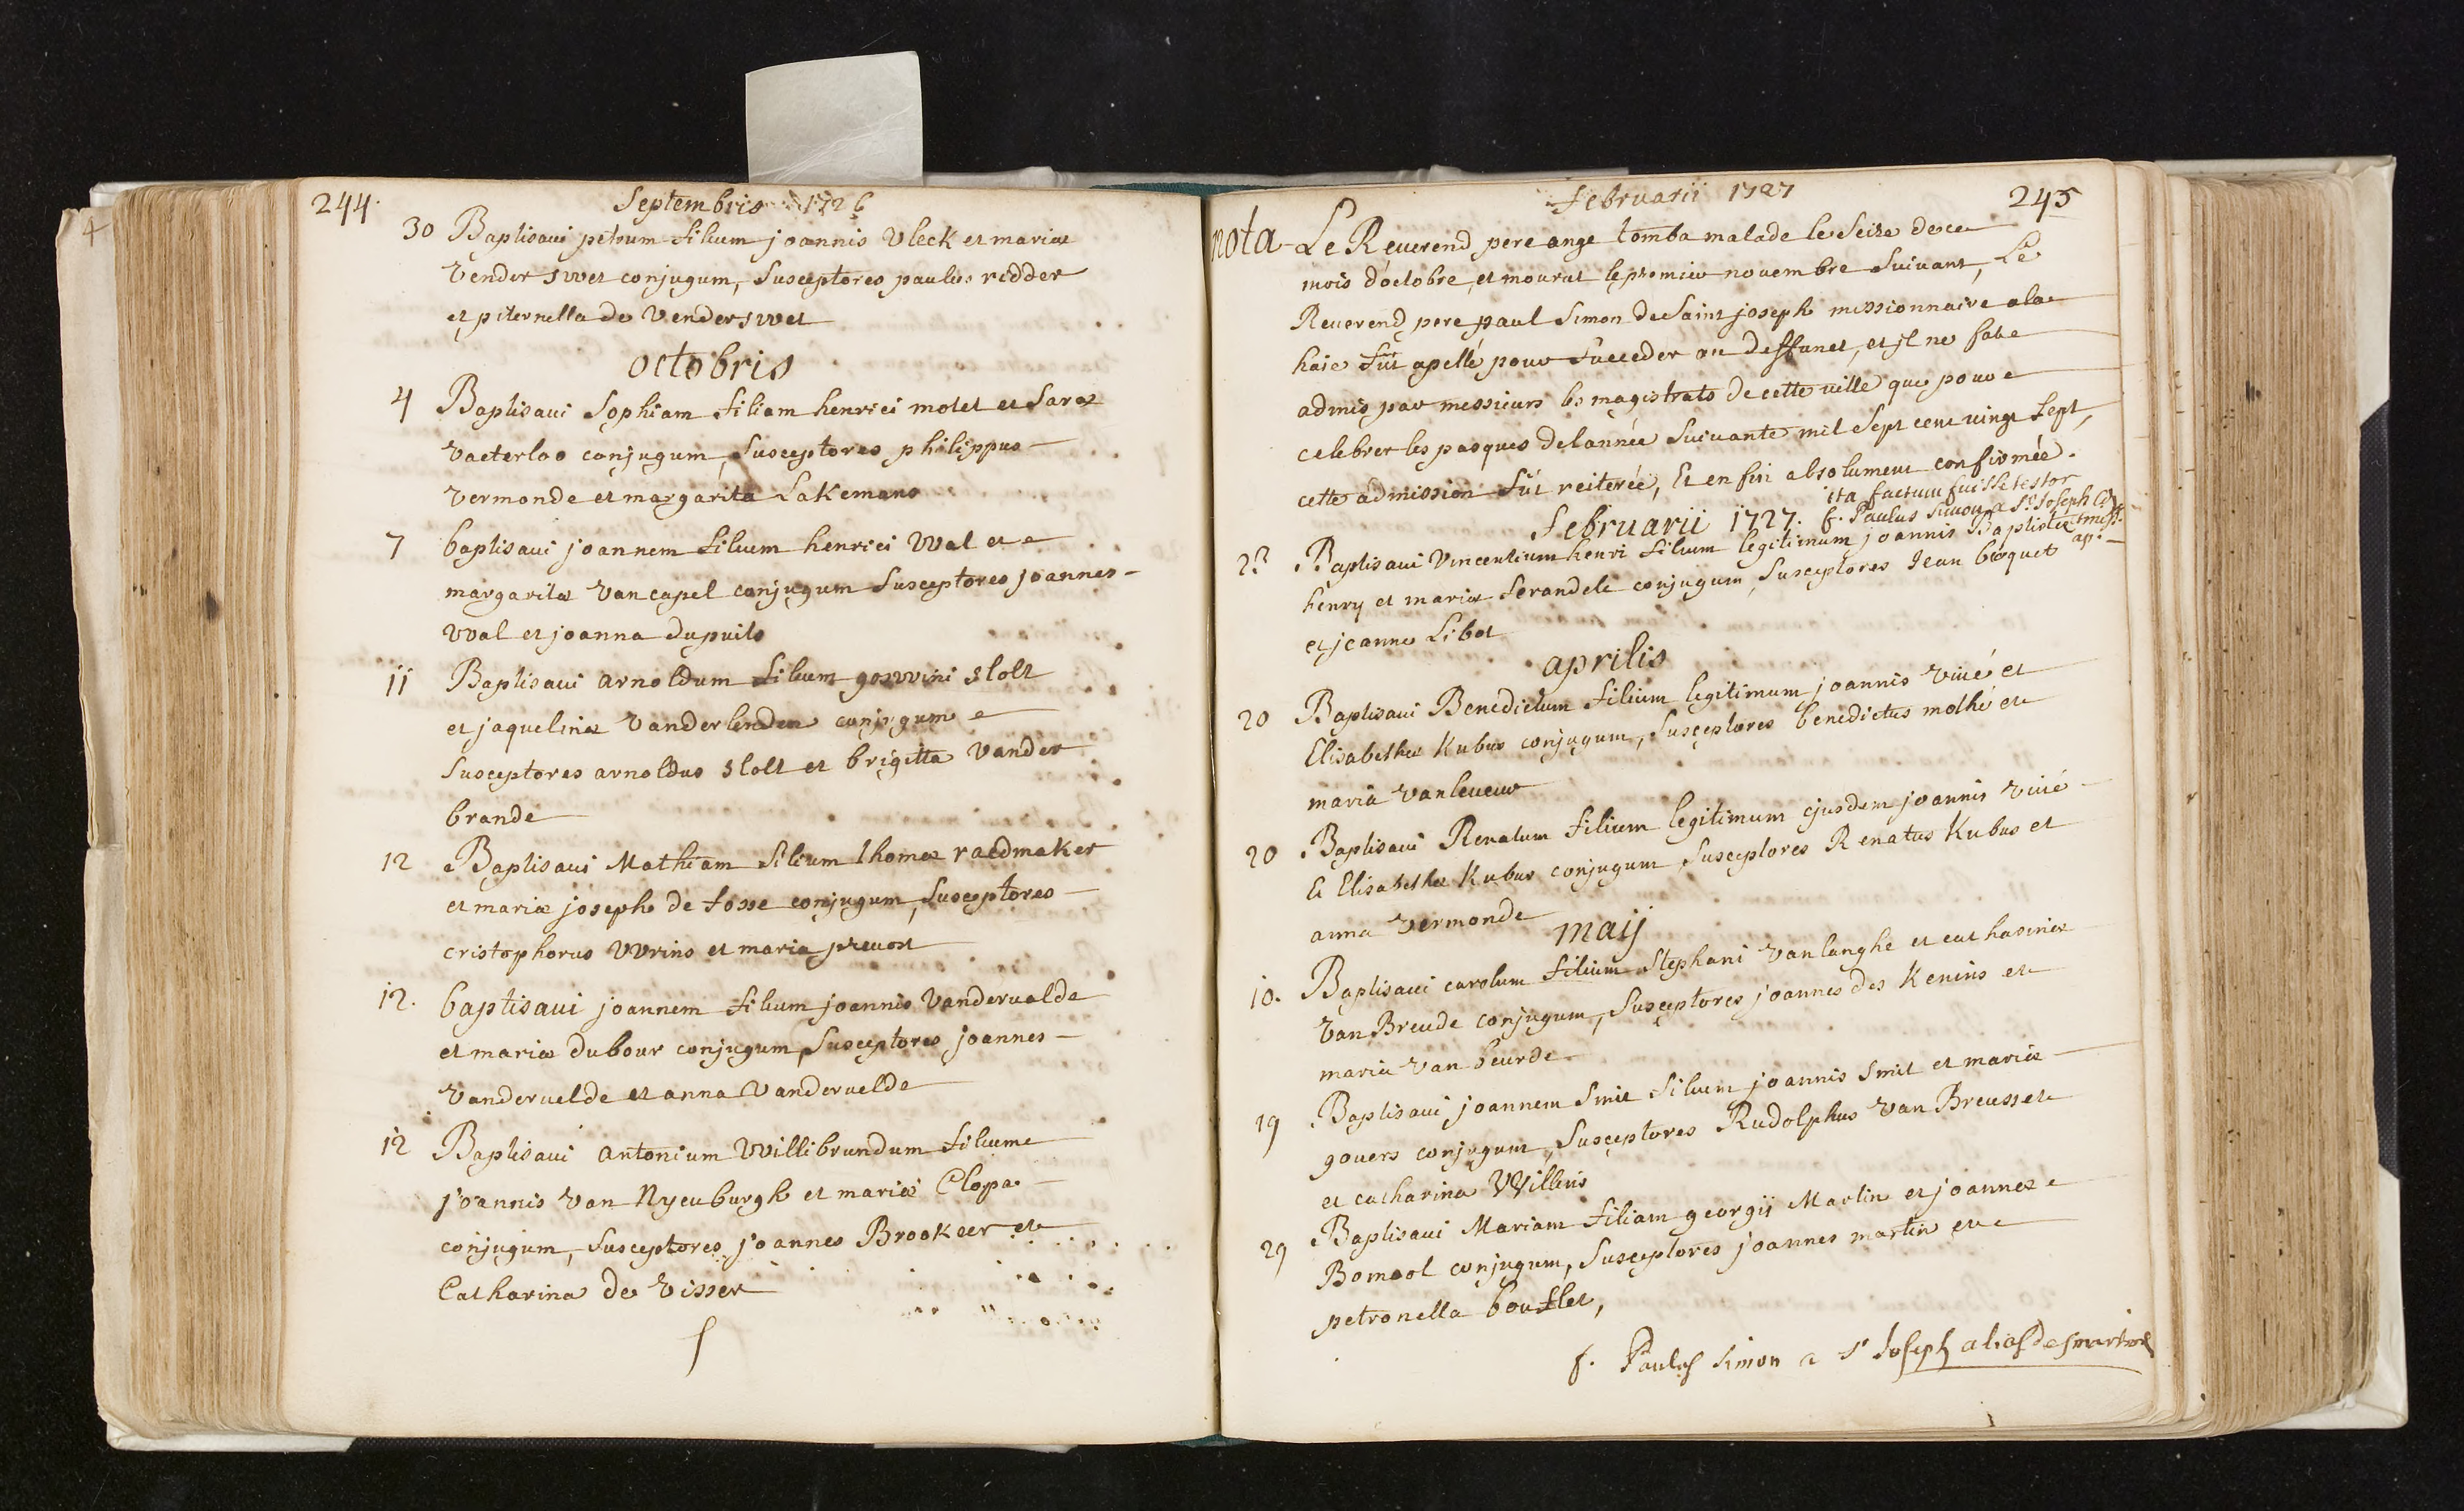 244.
Septembris 1726
30 Baptisavi petrum filium joannis Vleck et mariæ
Vender swet conjugum, Susceptores paulus ridder
et piternella de Venderswet
octobris
4 Baptisavi Sophiam filiam henrici motet et Saræ
Vaeterloo conjugum, Susceptores philippus
vermonde et margarita Lakemans
7 baptisavi joannem filium henrici Wal et
margaritæ Van capel conjugum Susceptores joannes
Wal et joanna dupuits
ii Baptisavi arnoldum filium goswini slott
et jaquelinæ Vanderlenden conjugum
Susceptores arnoldus slott et brigitta Vander
brande
12 Baptisavi Mathiam filium thomæ raedmaker
et mariæ joseph de fosse conjugum, Susceptores
cristophorus Wrins et maria prevost
12. baptisavi joannem filium joannis Vandervelde
et mariæ dubour conjugum, Susceptores joannes
Vandervelde et anna Vandervelde
12 Baptisavi antonium Willibrundum filium
joannis Van Nyenburgh et mariæ Clopa
conjugum, Susceptores joannes Brookeer et
Catharina de Visser
Februarii 1727
245
nota Le Reverend pere ange tomba malade le Seize de ce
mois d'octobre, et mourut le premier novembre Suivant, Le
Reverend pere paul Simon de Saint joseph missionnaire a la
haie fut apellé pour Succeder au deffunct, et jl ne fut
admis par messieurs les magistrats de cette ville que pour
celebrer les pasques de l'année Suivante mil Sept cent vingt Sept,
cette admission fut reiterée, Et en fin absolument confirmée.
ita factum fuisse testor
Februarii 1727. f. Paulus Simon a St. Joseph C. D.
miss. ap.
23 Baptisavi Vincentium henri filium legitimum joannis Baptistæ
henry et mariæ Serandele conjugum, Susceptores Jean boquet
et jeanne Libot
aprilis
20 Baptisavi Benedictum filium legitimum joannis Vivé et
Elisabethæ Kubus conjugum, Susceptores benedictus mothé et
maria Vanleveuw
20 Baptisavi Renatum filium legitimum ejusdem joannis Vivé
Et Elisabethæ Kubus conjugum, Susceptores Renatus Kubus et
anna Vermonde
maij
10. Baptisavi carolum filium Stephani Vanlanghe et catharinæ
Van Breude conjugum, Susceptores joannes des Kenins et
maria Van heurde
19 Baptisavi joannem Smit filium joannis Smit et mariæ
govers conjugum, Susceptores Rudolphus Van Breusset
et catharina Willins
29 Baptisavi Mariam filiam georgii Martin et joannæ
Bomool conjugum, Susceptores joannes martin et
petronella bouflet,
f. Paulus Simon a St Joseph alias desmartines